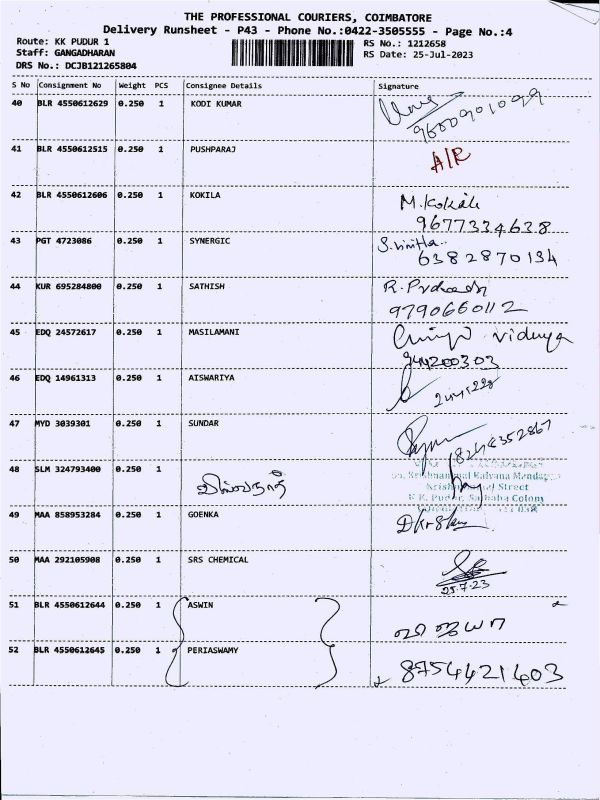 THE PROFESSIONAL COURIERS, COIMBATORE
Delivery Runsheet - P43 - Phone No.:0422-3505555 - Page No.:4
Route: KK PUDUR 1 RS No.: 1212658
Staff: GANGADHARAN RS Date: 25-Jul-2023
DRS No.: DCJB121265804
S No Consignment No Weight PCS Consignee Details Signature
40 BLR 4550612629 0.250 1 KODI KUMAR
9600901099
41 BLR 4550612515 0.250 1 PUSHPARAJ A/R
42 BLR 4550612606 0.250 1 KOKILA M.Kokila
9677334638
43 PGT 4723086 0.250 1 SYNERGIC
6382870134
44 KUR 695284800 0.250 1 SATHISH R.
9790660112
45 EDQ 24572617 0.250 1 MASILAMANI
46 EDQ 14961313 0.250 1 AISWARIYA
47 MYD 3039301 0.250 1 SUNDAR
48 SLM 324793400 0.250 1
Street
K.K. Pudur, Saibaba Colony
49 MAA 858953284 0.250 1 GOENKA
50 MAA 292105908 0.250 1 SRS CHEMICAL
25.7.23
51 BLR 4550612644 0.250 1 ASWIN
52 BLR 4550612645 0.250 1 PERIASWAMY 8754421403